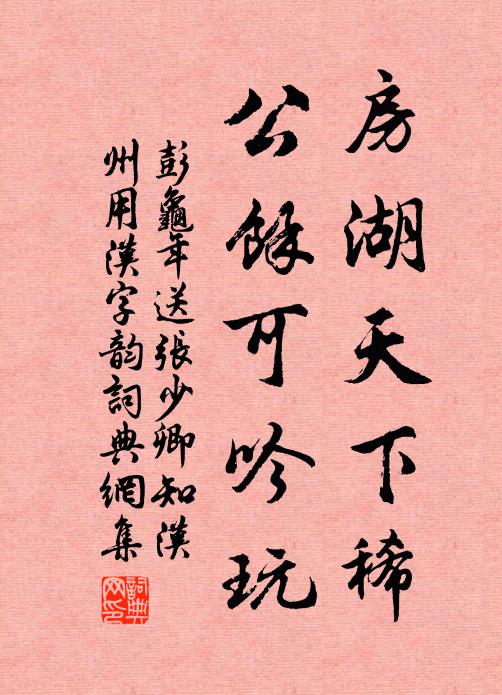 房湖天下稀
公餘可吟玩
彭龜年送張少卿知漢
州用漢字韵詞典網集
詞典
网印